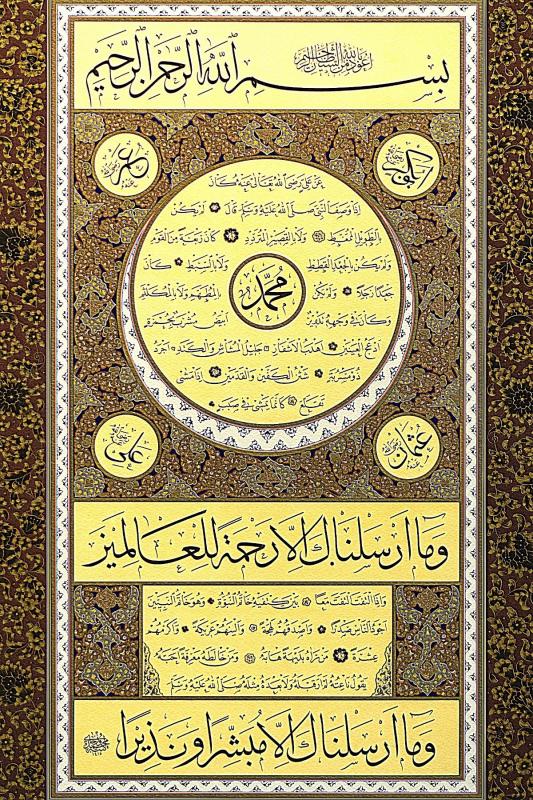 أعوذ بالله من الشيطان الرجيم
بِسْمِ اللهِ الرَّحْمٰنِ الرَّحِيمِ
أبو بكر
عمر
عن علي رضي الله تعالى عنه كان
إذا وصف النبي صلى الله عليه وسلم قال لم يكن
بالطويل الممغط ولا بالقصير المتردد كان ربعة من القوم
ولم يكن بالجعد القطط ولا بالسبط كان
جعدا رجلا ولم يكن بالمطهم ولا بالمكلثم
محمد
وكان في وجهه تدوير أبيض مشرب بحمرة
أدعج العينين أهدب الأشفار جليل المشاش والكتد أجرد
ذو مسربة شثن الكفين والقدمين إذا مشى
تقلع كأنما يمشي في صبب
عثمان
علي
وَمَا أَرْسَلْنَاكَ إِلَّا رَحْمَةً لِلْعَالَمِينَ
وإذا التفت التفت معا بين كتفيه خاتم النبوة وهو خاتم النبيين
أجود الناس صدرا وأصدقهم لهجة وألينهم عريكة وأكرمهم
عشرة من رآه بديهة هابه ومن خالطه معرفة أحبه
يقول ناعته لم أر قبله ولا بعده مثله صلى الله عليه وسلم
وَمَا أَرْسَلْنَاكَ إِلَّا مُبَشِّرًا وَنَذِيرًا